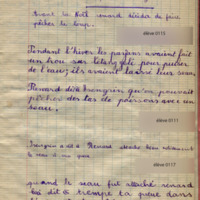 Avant la Noël renard décida de faire
pêcher le loup.
élève 0115
Pendant l'hiver les paysans avaient fait
un trou sur l'étang gelé pour puiser
de l'eau, ils avaient laissé leur seau.
Renard dit à Isengrin qu'on pouvait
pêcher des tas de poissons avec un
seau.
élève 0111
Isengrin a dit à Renard
le seau à ma queue.
élève 0117
quand le seau fut attaché renard
lui dit
trempe ta queue dans